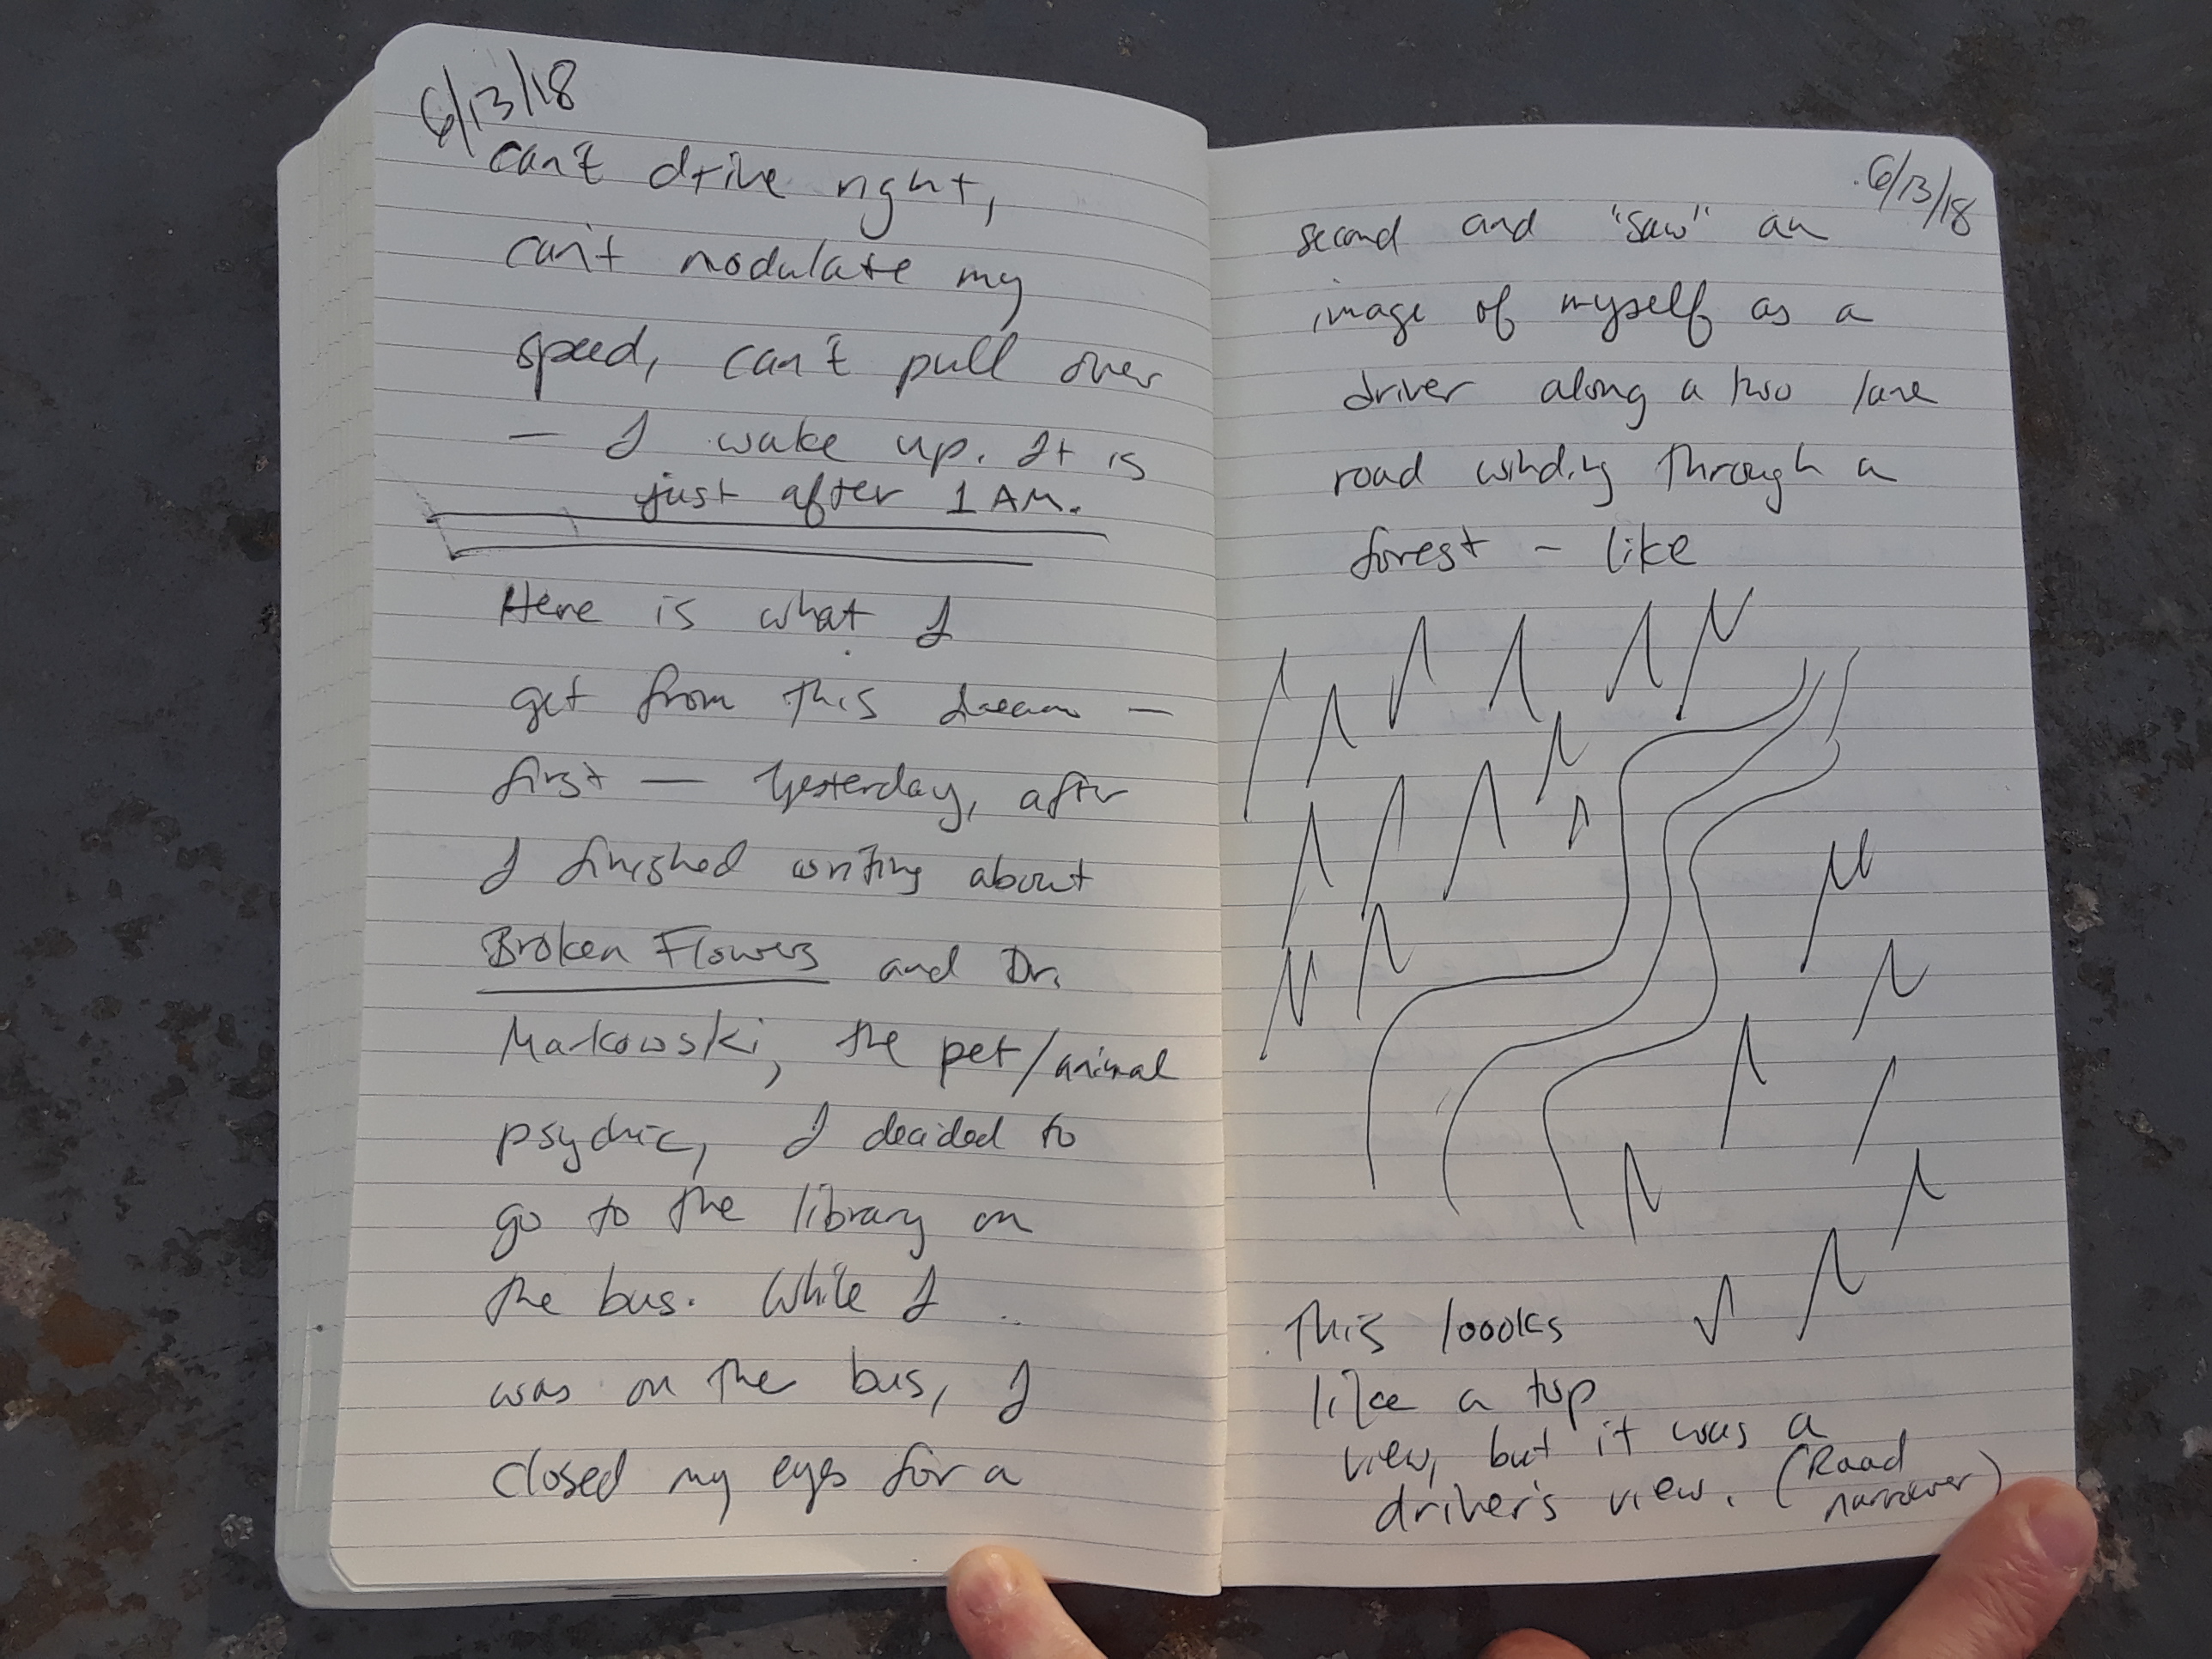 6/13/18
can't drive right,
can't modulate my
speed, can't pull over
— I wake up. It is
just after 1 AM.
Here is what I
get from this dream —
first — Yesterday, after
I finished writing about
Broken Flowers and Dr.
Markowski, the pet/animal
psychic, I decided to
go to the library on
the bus. While I
was on the bus, I
closed my eyes for a
6/13/18
second and "saw" an
image of myself as a
driver along a two lane
road winding through a
forest – like
This loooks
like a top
view, but it was a
driver's view. (Road
narrower)